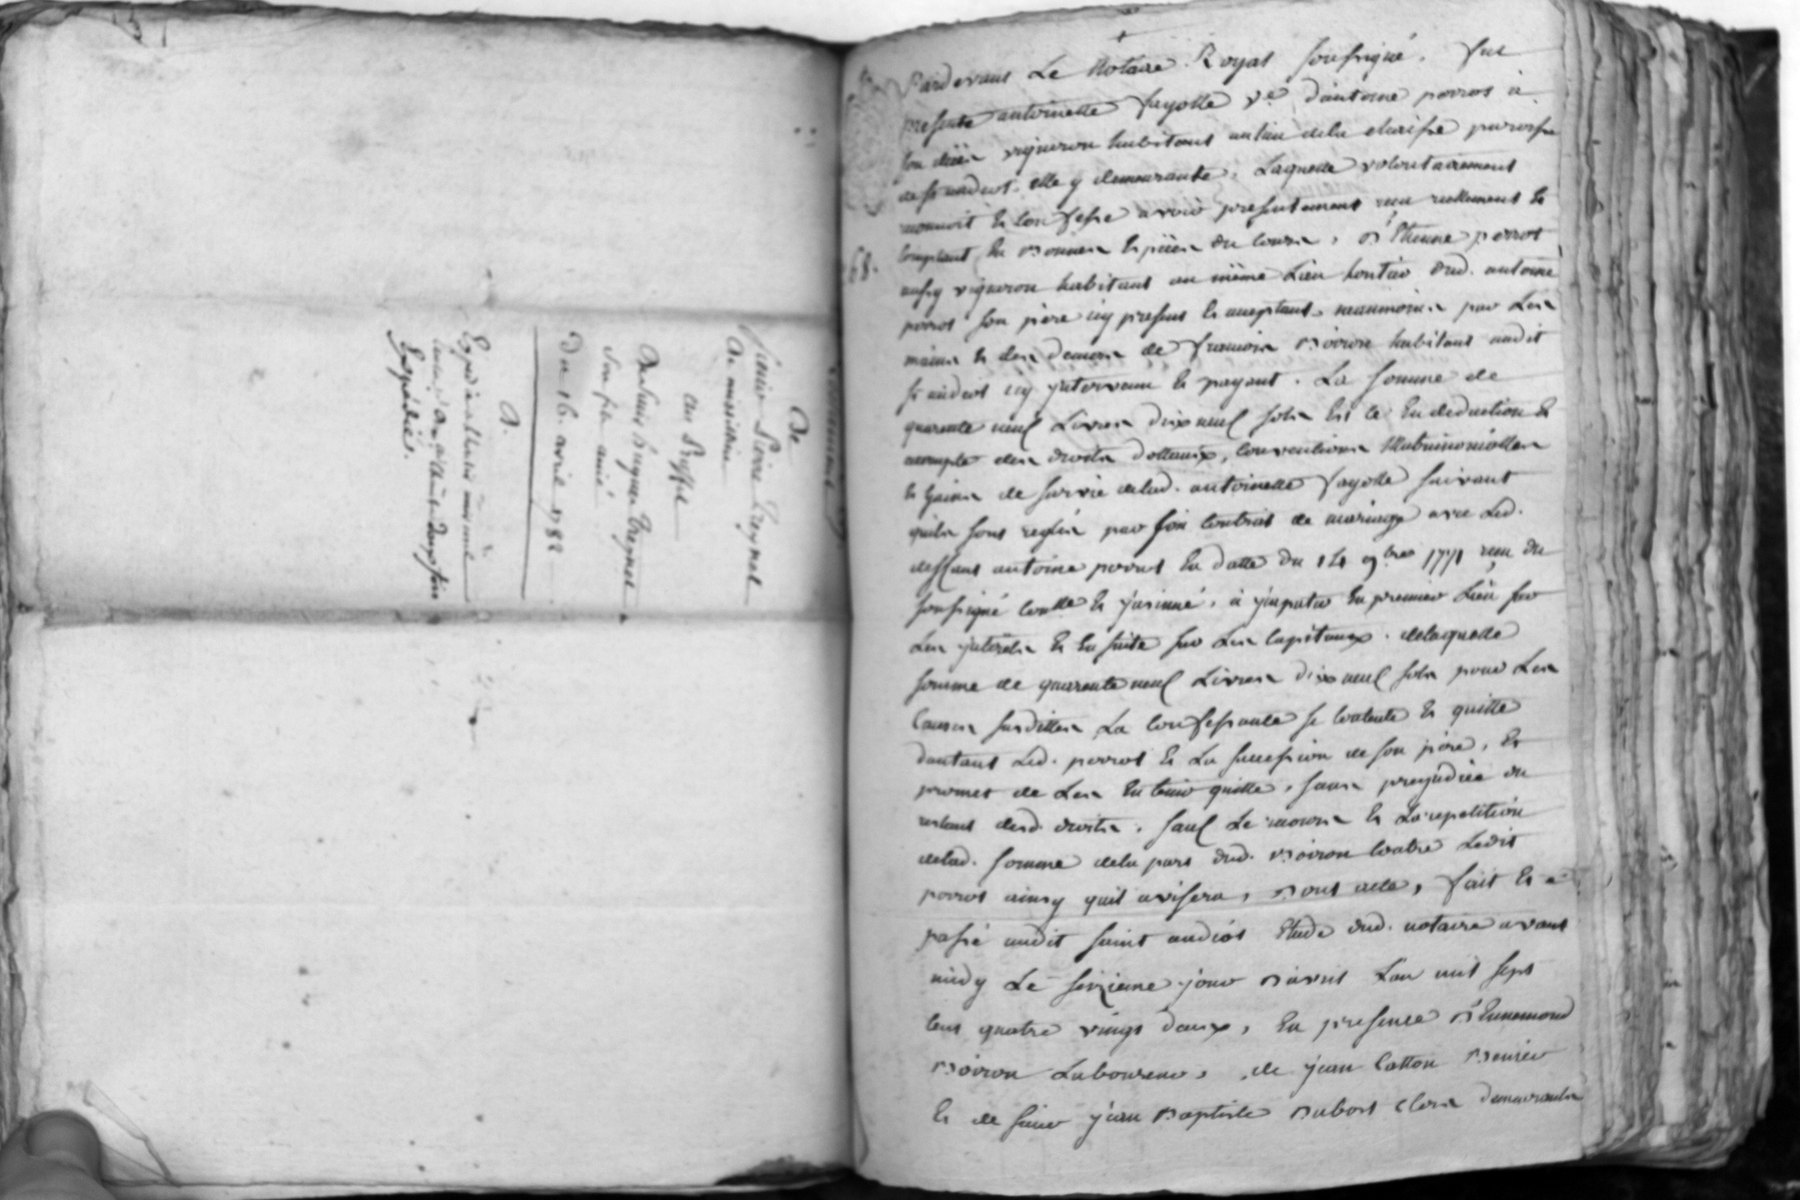 De
sieur Pierre Treynet
A. ministre
au Proffit
De sieur hugues treynet
Son fils ainé
Du 16. avril 1782
Expédiés.
68.
Pardevant Le Notaire Royal soussigné, fut
presente antoinette fayolle v.e d'antoine perrot à
son deces vigneron habitant au lieu de la chaisse paroisse
de st andeol, elle y demeurante, Laquelle volontairement
reconnoit et confesse avoir presentement reçu reellement et
comptant en Bonnes Especes du cours, D'Etienne perrot
aussy vigneron habitant au même Lieu heritier dud. antoine
perrot son père icy present et acceptant, neanmoins par Les
mains et des deniers de francois Boiron habitant audit
st andeol icy intervenu et payant. La somme de
quarante neuf Livres dix neuf sols Et ce En deduction et
acompte des droits dottaux, Conventions Matrimonialles
et Gains de survie de lad. antoinette fayolle suivant
quils sont reglés par son Contrat de mariage avec Led.
deffunt antoine perrot En datte du 14 9.bre 1771 reçu du
soussigné Controllé et jnsinué, à jmputer En premier Lieu sur
Les jnterets et En suite sur Les Capitaux. de laquelle
somme de quarante neuf Livres dix neuf sols pour Les
Causes susdittes La confessante se Contente et quitte
dautant Led. perrot et La succession de son père, et
promet de Les En tenir quitte, sans prejudice du
restant desd. droits. sauf Le recours et La repetition
de lad. somme de la part dud. Boiron Contre Ledit
perrot ainsy quil avisera, Dont acte, fait et
passé audit saint andeol Etude dud. notaire avant
midy Le seizieme jour D'avril L'an mil sept
Cent quatre vingt deux, En presence D'Ennemond
Boiron Laboureur, de jean Catton Benier
et de sieur jean Baptiste Dubost clerc demeurants